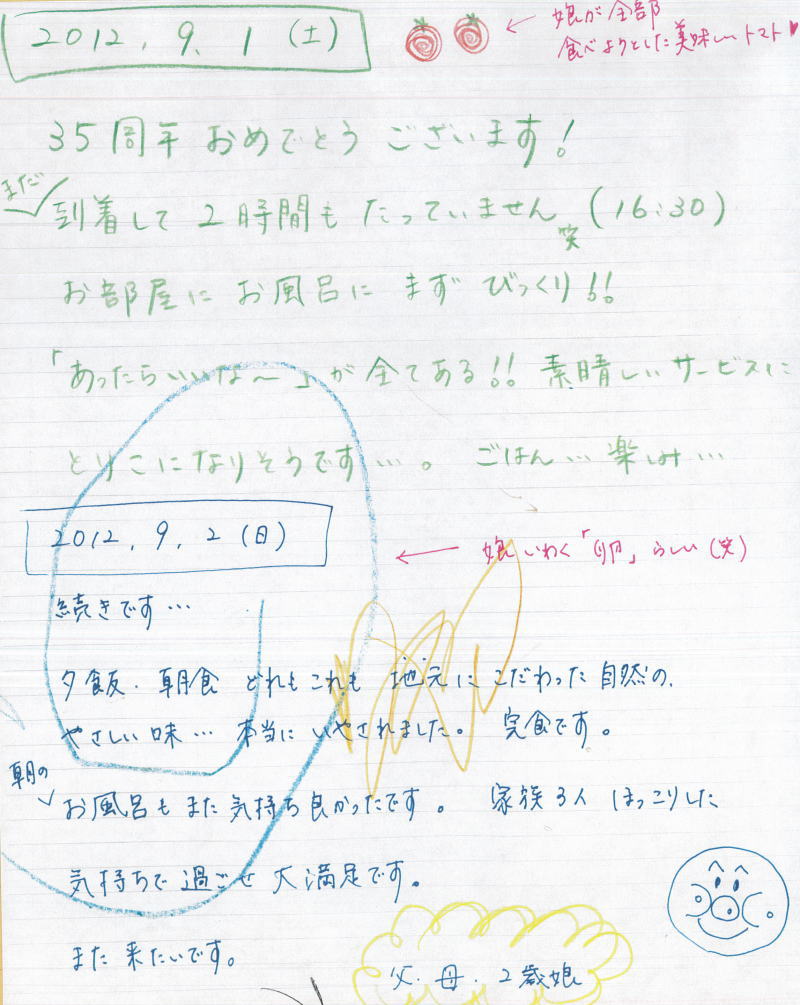 2012. 9. 1 (土)
娘が全部
食べようとした美味しいトマト♥
35周年 おめでとう ございます!
まだ
到着して 2時間も たっていません (16:30)
笑
お部屋に お風呂に まず びっくり!!
「あったらいいな〜」が 全てある!! 素晴しい サービスに
とりこになりそうです…。 ごはん… 楽しみ…
2012. 9. 2 (日)
娘いわく「卵」らしい (笑)
続きです…
夕飯・朝食 どれもこれも 地元に こだわった 自然の
やさしい味… 本当に いやされました。 完食です。
朝の
お風呂も また 気持ち良かったです。 家族3人 ほっこりした
気持ちで 過ごせ 大満足です。
また 来たいです。
父・母・2歳娘